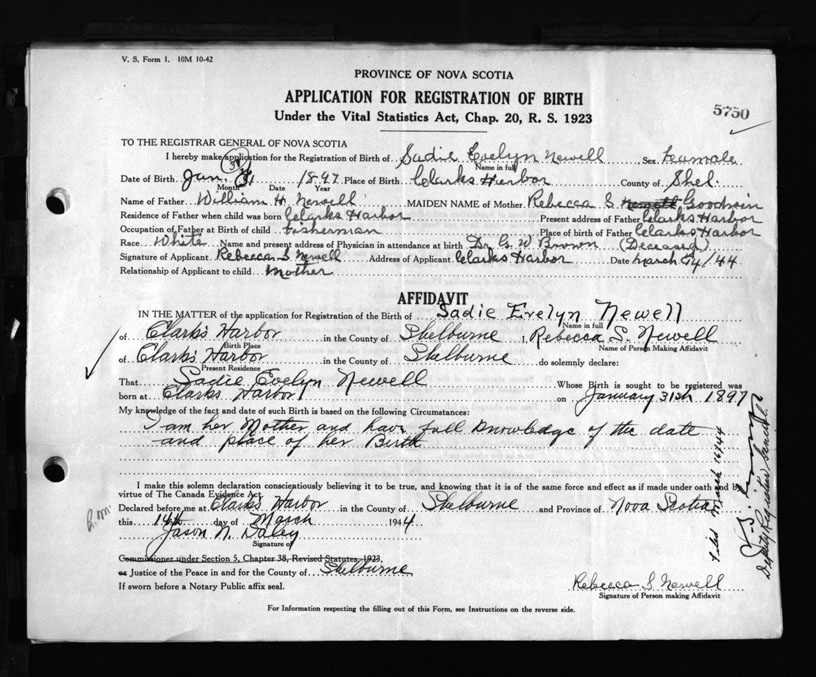 V. S. Form 1. 10M 10-42
PROVINCE OF NOVA SCOTIA
APPLICATION FOR REGISTRATION OF BIRTH
Under the Vital Statistics Act, Chap. 20, R. S. 1923
5750
TO THE REGISTRAR GENERAL OF NOVA SCOTIA
I hereby make application for the Registration of Birth of Sadie Evelyn Newell Sex Female
Name in full
Date of Birth Jan. 31 1897 Place of Birth Clarks Harbor County of Shel.
Month Date Year
Name of Father William H. Newell MAIDEN NAME of Mother Rebecca S. Newell Goodwin
Residence of Father when child was born Clarks Harbor Present address of Father Clarks Harbor
Occupation of Father at Birth of child Fisherman Place of birth of Father Clarks Harbor
Race White Name and present address of Physician in attendance at birth Dr G. W Brown (Deceased)
Signature of Applicant Rebecca S Newell Address of Applicant Clarks Harbor Date March 14/44
Relationship of Applicant to child Mother
AFFIDAVIT
IN THE MATTER of the application for Registration of the Birth of Sadie Evelyn Newell
Name in full
of Clarks Harbor in the County of Shelburne I, Rebecca S. Newell
Birth Place Name of Person Making Affidavit
of Clarks Harbor in the County of Shelburne do solemnly declare:
Present Residence
That Sadie Evelyn Newell Whose Birth is sought to be registered was
born at Clarks Harbor on January 31st 1897
My knowledge of the fact and date of such Birth is based on the following Circumstances:
I am her Mother and have full knowledge of the date
and place of her Birth
I make this solemn declaration conscientiously believing it to be true, and knowing that it is of the same force and effect as if made under oath and by
virtue of The Canada Evidence Act.
Declared before me at Clarks Harbor in the County of Shelburne and Province of Nova Scotia
this 14th day of March 1944
Jason N. Daley
Signature of
Commissioner under Section 5, Chapter 38, Revised Statutes, 1923,
or Justice of the Peace in and for the County of Shelburne
If sworn before a Notary Public affix seal.
Rebecca S Newell
Signature of Person making Affidavit
For Information respecting the filling out of this Form, see Instructions on the reverse side.
Filed March 16/44
Deputy Registrar General.